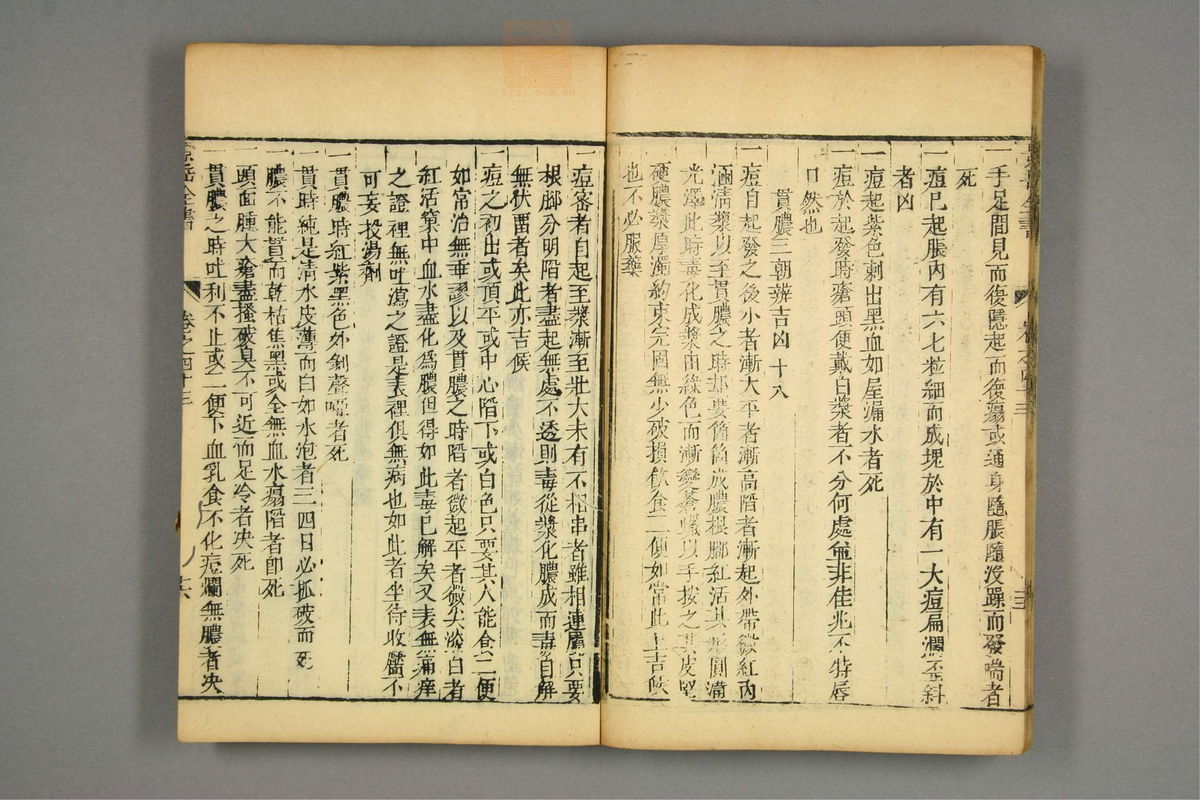 一手足間見而復隱起而復瘍或通身隨脹隨没躁而發喘者
死
一痘已起脹内有六七粒細而成塊於中有一大痘扁爛歪斜
者凶
一痘起紫色刺出黑血如屋漏水者死
一痘於起發時瘡頭便戴白漿者不分何處並非佳兆不特唇
口然也
貫膿三朝辨吉凶 十八
一痘自起發之後小者漸大平者漸高陷者漸起外帶微紅内
涵清漿以至貫膿之時却要箇箇成膿根腳紅活其形圓滿
光澤此時毒化成漿由綠色而漸變蒼蠟以手按之其皮堅
硬膿漿厚濁約束完固無少破損飲食二便如常此上吉候
也不必服藥
一痘密者自起至漿漸至壯大未有不相串者雖相連屬只要
根腳分明陷者盡起無處不透則毒從漿化膿成而毒自解
無伏留者矣此亦吉候
一痘之初出或頂平或中心陷下或白色只要其人能食二便
如常治無乖謬以及貫膿之時陷者微起平者微尖淡白者
紅活窠中血水盡化爲膿但得如此毒已解矣又表無痛痒
之證裡無吐瀉之證是表裡俱無病也如此者坐待收靨不
可妄投湯劑
一貫膿時紅紫黑色外剝聲啞者死
一貫時純是清水皮薄而白如水泡者三四日必抓破而死
膿不能貫而乾枯焦黑或全無血水塌陷者卽死
頭面腫大瘡盡搔破臭不可近而足冷者决死
貫膿之時吐利不止或二便下血乳食不化痘爛無膿者决
景岳全書
卷之四十三